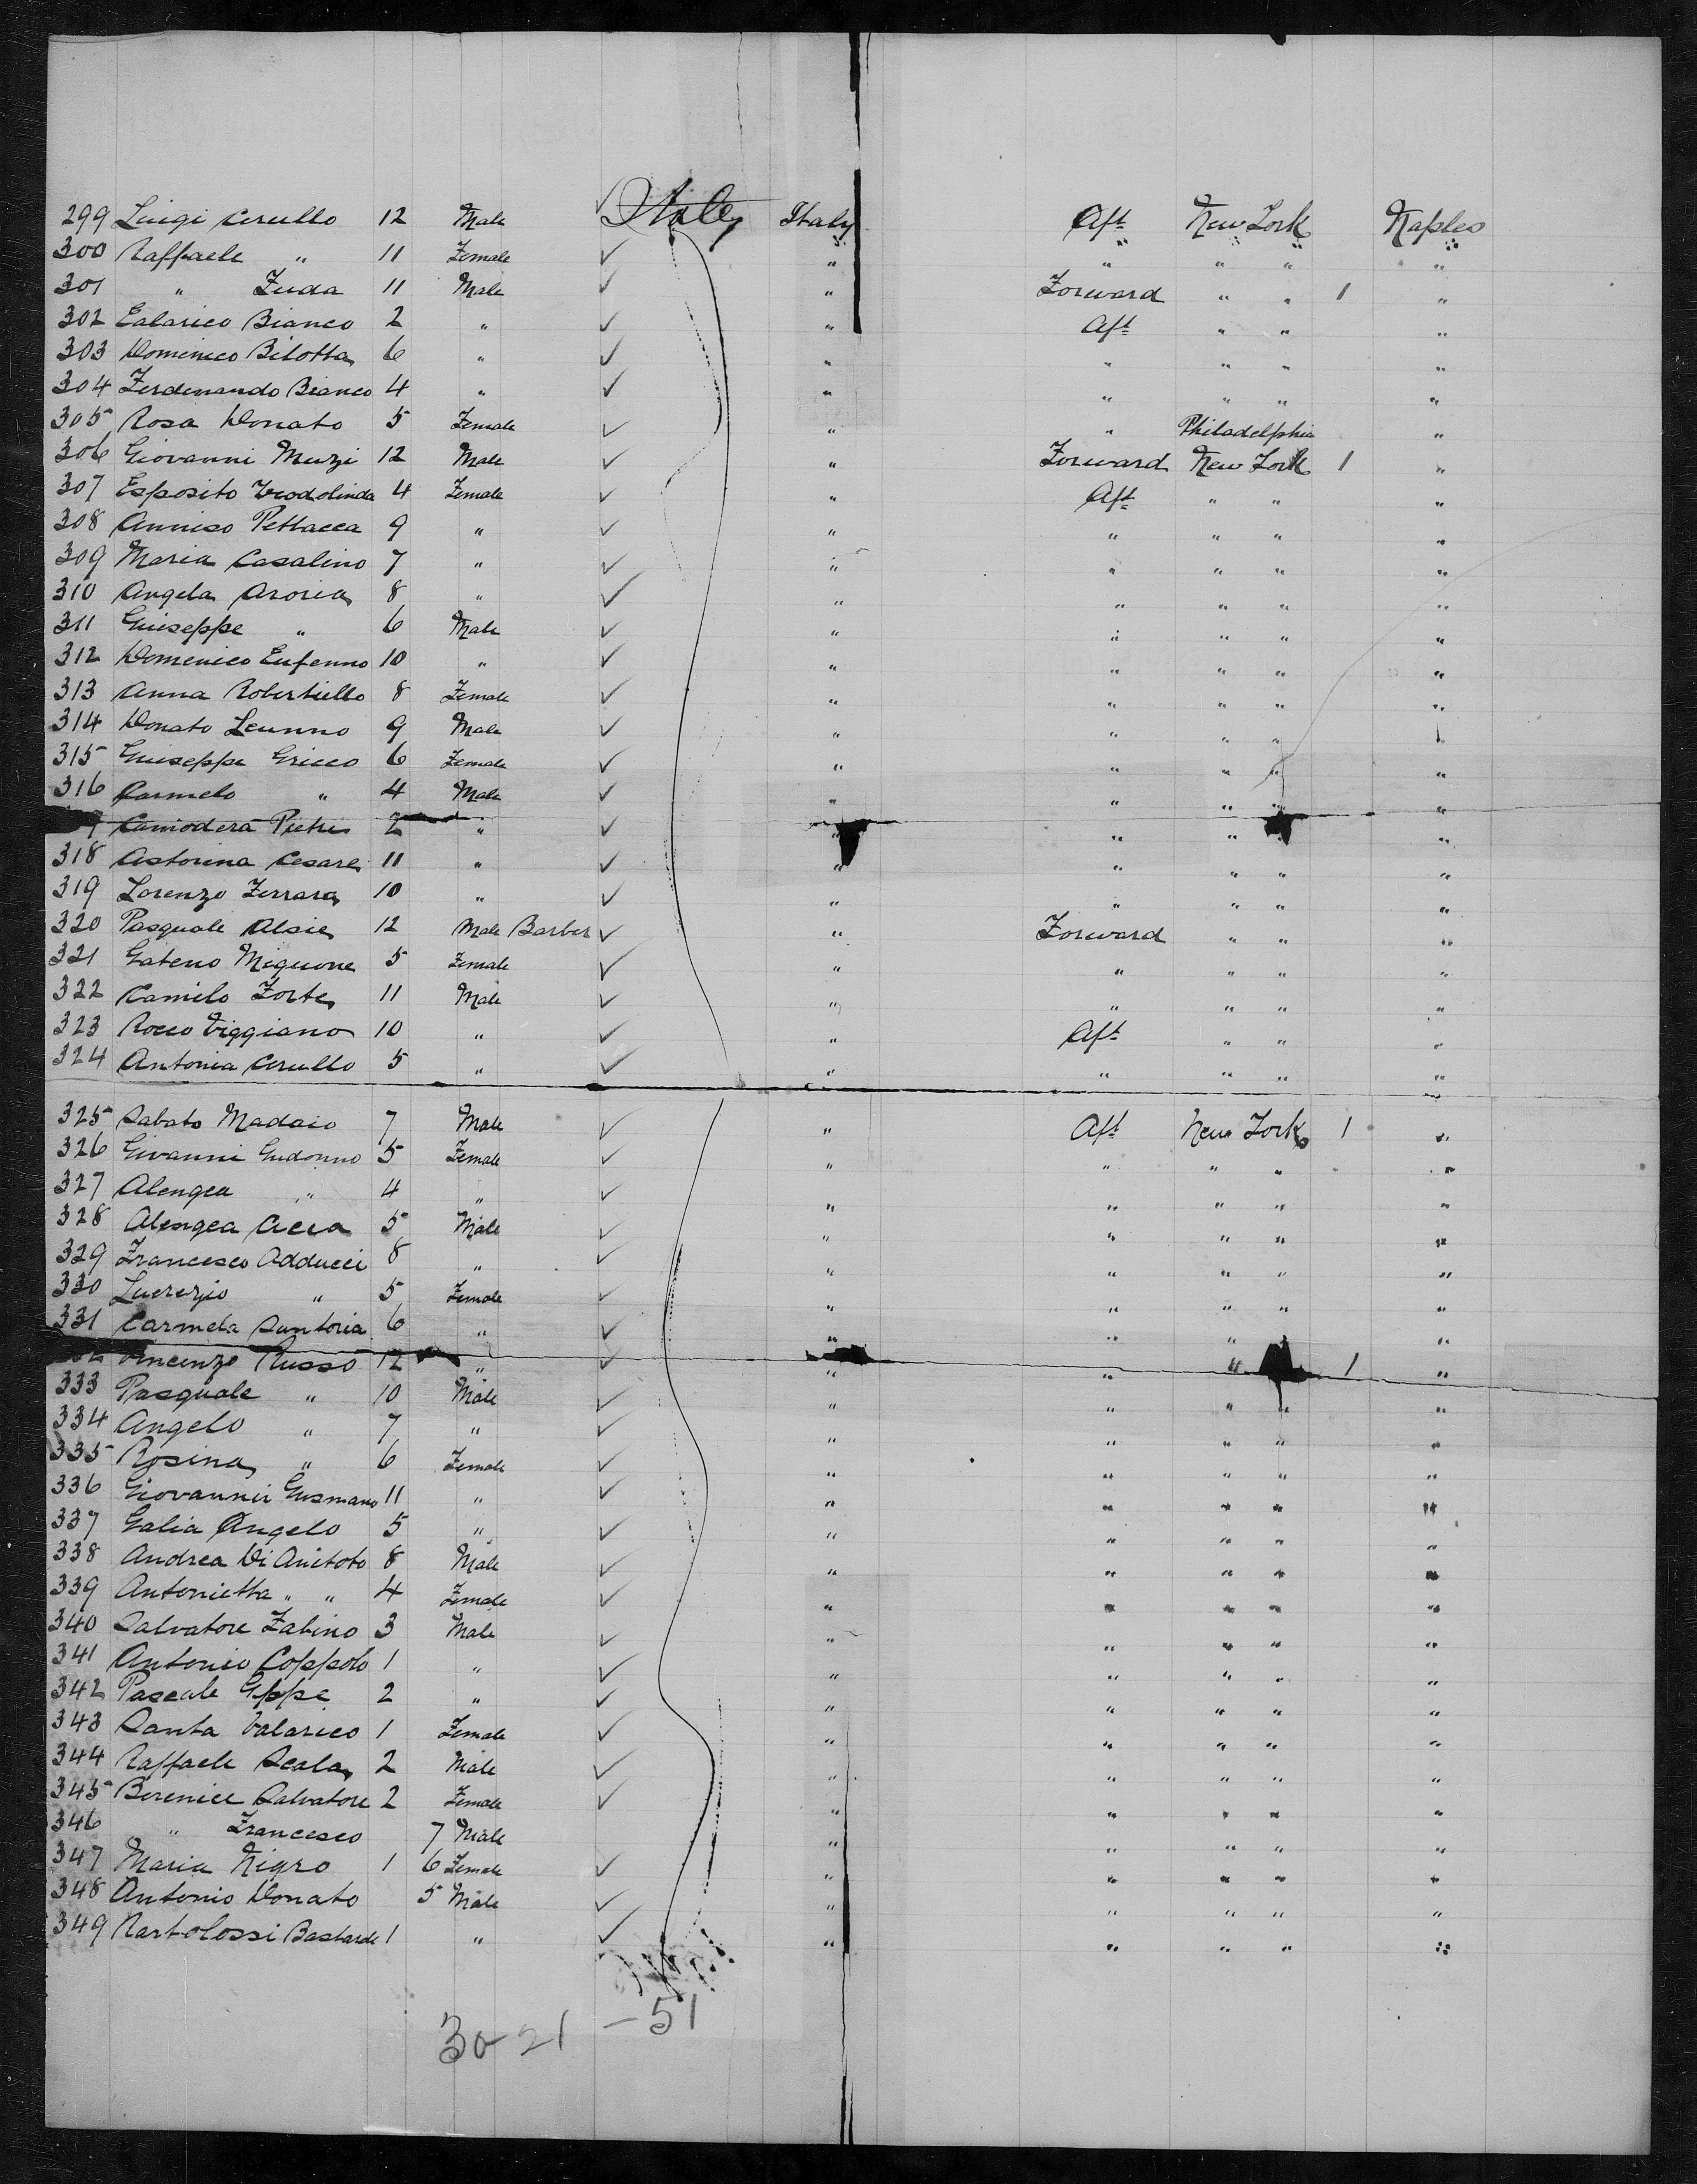 299 Luigi Cerullo 12 Male Italy Italy Aft New York Naples
300 Raffaele " 11 Female " " " " "
301 " Zuda 11 Male " Forward " " 1 "
302 Ealarico Bianco 2 " " Aft " " "
303 Domenico Bilotta 6 " " " " " "
304 Ferdinando Bianco 4 " " " " " "
305 Rosa Donato 5 Female " " Philadelphia "
306 Giovanni Muzi 12 Male " Forward New York 1 "
307 Esposito Teodolinda 4 Female " Aft " " "
308 Anniso Pettacca 9 " " " " " "
309 Maria Casalino 7 " " " " " "
310 Angela Aroria 8 " " " " " "
311 Giuseppe " 6 Male " " " " "
312 Domenico Eufenno 10 " " " " " "
313 Anna Robertiello 8 Female " " " " "
314 Donato Leunno 9 Male " " " " "
315 Giuseppe Gricco 6 Female " " " " "
316 Carmelo " 4 Male " " " " "
7 Camodera Pietri 2 " " " " " "
318 Astorina Cesare 11 " " " " " "
319 Lorenzo Ferrara 10 " " " " " "
320 Pasquale Alsie 12 Male Barber " Forward " " "
321 Gateno Mignone 5 Female " " " " "
322 Camilo Forte 11 Male " " " " "
323 Rocco Viggiano 10 " " Aft " " "
324 Antonia Cerullo 5 " " " " " "
325 Sabato Madaio 7 Male " Aft New York 1 "
326 Givanni Gudonno 5 Female " " " " "
327 Alengea " 4 " " " " " "
328 Alengea Acca 5 Male " " " " "
329 Francesco Adducci 8 " " " " " "
330 Lucrezio " 5 Female " " " " "
331 Carmela Suntoria 6 " " " " "
Vincenzo Russo 12 " " " " 1 "
333 Pasquale " 10 Male " " " " "
334 Angelo " 7 " " " " " "
335 Rosina " 6 Female " " " " "
336 Giovannii Gusmano 11 " " " " " "
337 Galia Angelo 5 " " " " " "
338 Andrea Di Anitoto 8 Male " " " " "
339 Antonietta " " 4 Female " " " " "
340 Salvatore Zabino 3 Male " " " " "
341 Antonio Coppolo 1 " " " " " "
342 Pascale Gppe 2 " " " " " "
343 Santa Valarico 1 Female " " " " "
344 Raffaele Scala 2 Male " " " " "
345 Berenice Salvatore 2 Female " " " " "
346 " Francesco 7 Male " " " " "
347 Maria Nigro 1 6 Female " " " " "
348 Antonio Donato 5 Male " " " " "
349 Bartolossi Bastarde 1 " " " " " "
30 21 - 51